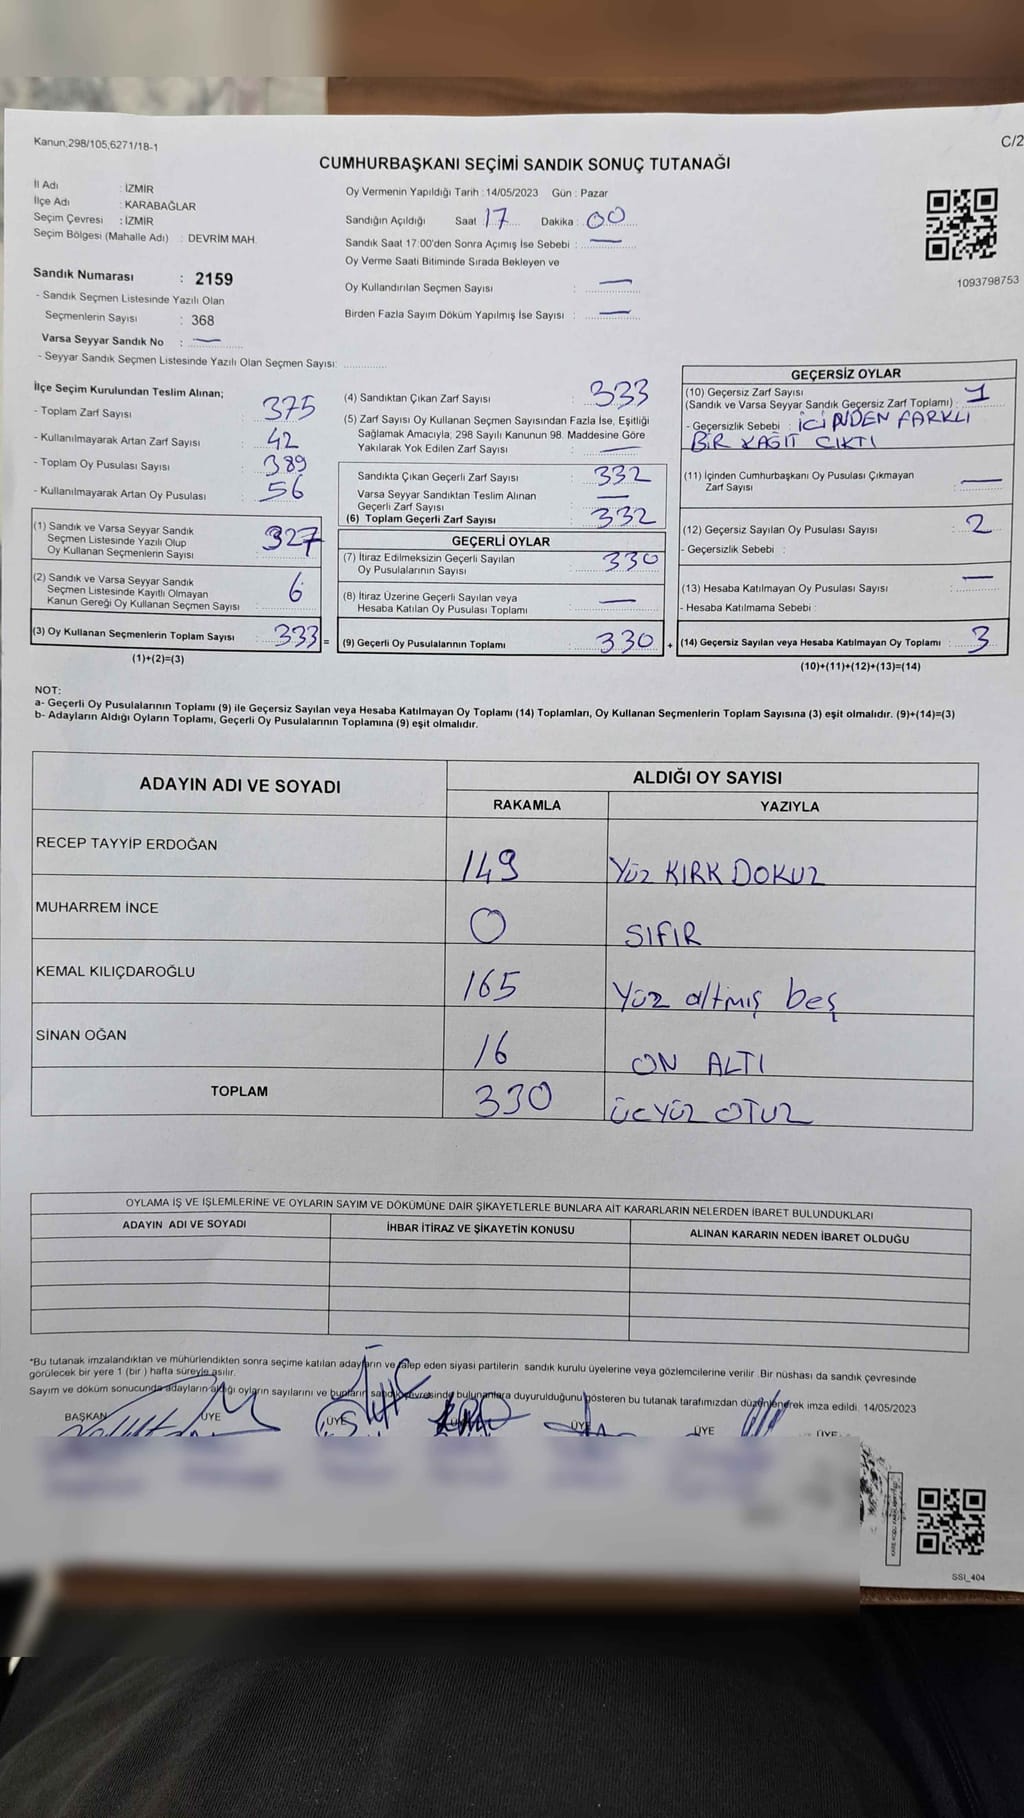 Kanun;298/105,6271/18-1
C/2
CUMHURBAŞKANI SEÇİMİ SANDIK SONUÇ TUTANAĞI
İl Adı : İZMİR
İlçe Adı : KARABAĞLAR
Seçim Çevresi : İZMİR
Seçim Bölgesi (Mahalle Adı) : DEVRİM MAH.
Oy Vermenin Yapıldığı Tarih : 14/05/2023 Gün : Pazar
Sandığın Açıldığı Saat 17 Dakika : 00
Sandık Saat 17:00'den Sonra Açımış İse Sebebi : —
Oy Verme Saati Bitiminde Sırada Bekleyen ve
Oy Kullandırılan Seçmen Sayısı : —
Birden Fazla Sayım Döküm Yapılmış İse Sayısı : —
1093798753
Sandık Numarası : 2159
- Sandık Seçmen Listesinde Yazılı Olan
Seçmenlerin Sayısı : 368
Varsa Seyyar Sandık No : —
- Seyyar Sandık Seçmen Listesinde Yazılı Olan Seçmen Sayısı: ..............
İlçe Seçim Kurulundan Teslim Alınan;
- Toplam Zarf Sayısı : 375
- Kullanılmayarak Artan Zarf Sayısı : 42
- Toplam Oy Pusulası Sayısı : 389
- Kullanılmayarak Artan Oy Pusulası : 56
(1) Sandık ve Varsa Seyyar Sandık
Seçmen Listesinde Yazılı Olup
Oy Kullanan Seçmenlerin Sayısı : 327
(2) Sandık ve Varsa Seyyar Sandık
Seçmen Listesinde Kayıtlı Olmayan
Kanun Gereği Oy Kullanan Seçmen Sayısı : 6
(3) Oy Kullanan Seçmenlerin Toplam Sayısı : 333 =
(1)+(2)=(3)
(4) Sandıktan Çıkan Zarf Sayısı : 333
(5) Zarf Sayısı Oy Kullanan Seçmen Sayısından Fazla İse, Eşitliği
Sağlamak Amacıyla, 298 Sayılı Kanunun 98. Maddesine Göre
Yakılarak Yok Edilen Zarf Sayısı : —
Sandıkta Çıkan Geçerli Zarf Sayısı : 332
Varsa Seyyar Sandıktan Teslim Alınan
Geçerli Zarf Sayısı : —
(6) Toplam Geçerli Zarf Sayısı : 332
GEÇERLİ OYLAR
(7) İtiraz Edilmeksizin Geçerli Sayılan
Oy Pusulalarının Sayısı : 330
(8) İtiraz Üzerine Geçerli Sayılan veya
Hesaba Katılan Oy Pusulası Toplamı : —
(9) Geçerli Oy Pusulalarının Toplamı : 330 +
GEÇERSİZ OYLAR
(10) Geçersiz Zarf Sayısı
(Sandık ve Varsa Seyyar Sandık Geçersiz Zarf Toplamı) : 1
- Geçersizlik Sebebi : İÇİNDEN FARKLI
BİR KAĞIT ÇIKTI
(11) İçinden Cumhurbaşkanı Oy Pusulası Çıkmayan
Zarf Sayısı : —
(12) Geçersiz Sayılan Oy Pusulası Sayısı : 2
- Geçersizlik Sebebi :
(13) Hesaba Katılmayan Oy Pusulası Sayısı : —
- Hesaba Katılmama Sebebi :
(14) Geçersiz Sayılan veya Hesaba Katılmayan Oy Toplamı : 3
(10)+(11)+(12)+(13)=(14)
NOT:
a- Geçerli Oy Pusulalarının Toplamı (9) ile Geçersiz Sayılan veya Hesaba Katılmayan Oy Toplamı (14) Toplamları, Oy Kullanan Seçmenlerin Toplam Sayısına (3) eşit olmalıdır. (9)+(14)=(3)
b- Adayların Aldığı Oyların Toplamı, Geçerli Oy Pusulalarının Toplamına (9) eşit olmalıdır.
ADAYIN ADI VE SOYADI
ALDIĞI OY SAYISI
RAKAMLA YAZIYLA
RECEP TAYYİP ERDOĞAN 149 Yüz KIRK DOKUZ
MUHARREM İNCE 0 SIFIR
KEMAL KILIÇDAROĞLU 165 Yüz altmış beş
SİNAN OĞAN 16 ON ALTI
TOPLAM 330 ÜÇYÜZ OTUZ
OYLAMA İŞ VE İŞLEMLERİNE VE OYLARIN SAYIM VE DÖKÜMÜNE DAİR ŞİKAYETLERLE BUNLARA AİT KARARLARIN NELERDEN İBARET BULUNDUKLARI
ADAYIN ADI VE SOYADI İHBAR İTİRAZ VE ŞİKAYETİN KONUSU ALINAN KARARIN NEDEN İBARET OLDUĞU
*Bu tutanak imzalandıktan ve mühürlendikten sonra seçime katılan adayların ve talep eden siyasi partilerin sandık kurulu üyelerine veya gözlemcilerine verilir. Bir nüshası da sandık çevresinde
görülecek bir yere 1 (bir ) hafta süreyle asılır.
Sayım ve döküm sonucunda adayların aldığı oyların sayılarını ve bunların sandık çevresinde bulunanlara duyurulduğunu gösteren bu tutanak tarafımızdan düzenlenerek imza edildi. 14/05/2023
BAŞKAN ÜYE ÜYE ÜYE ÜYE ÜYE
SSI_404